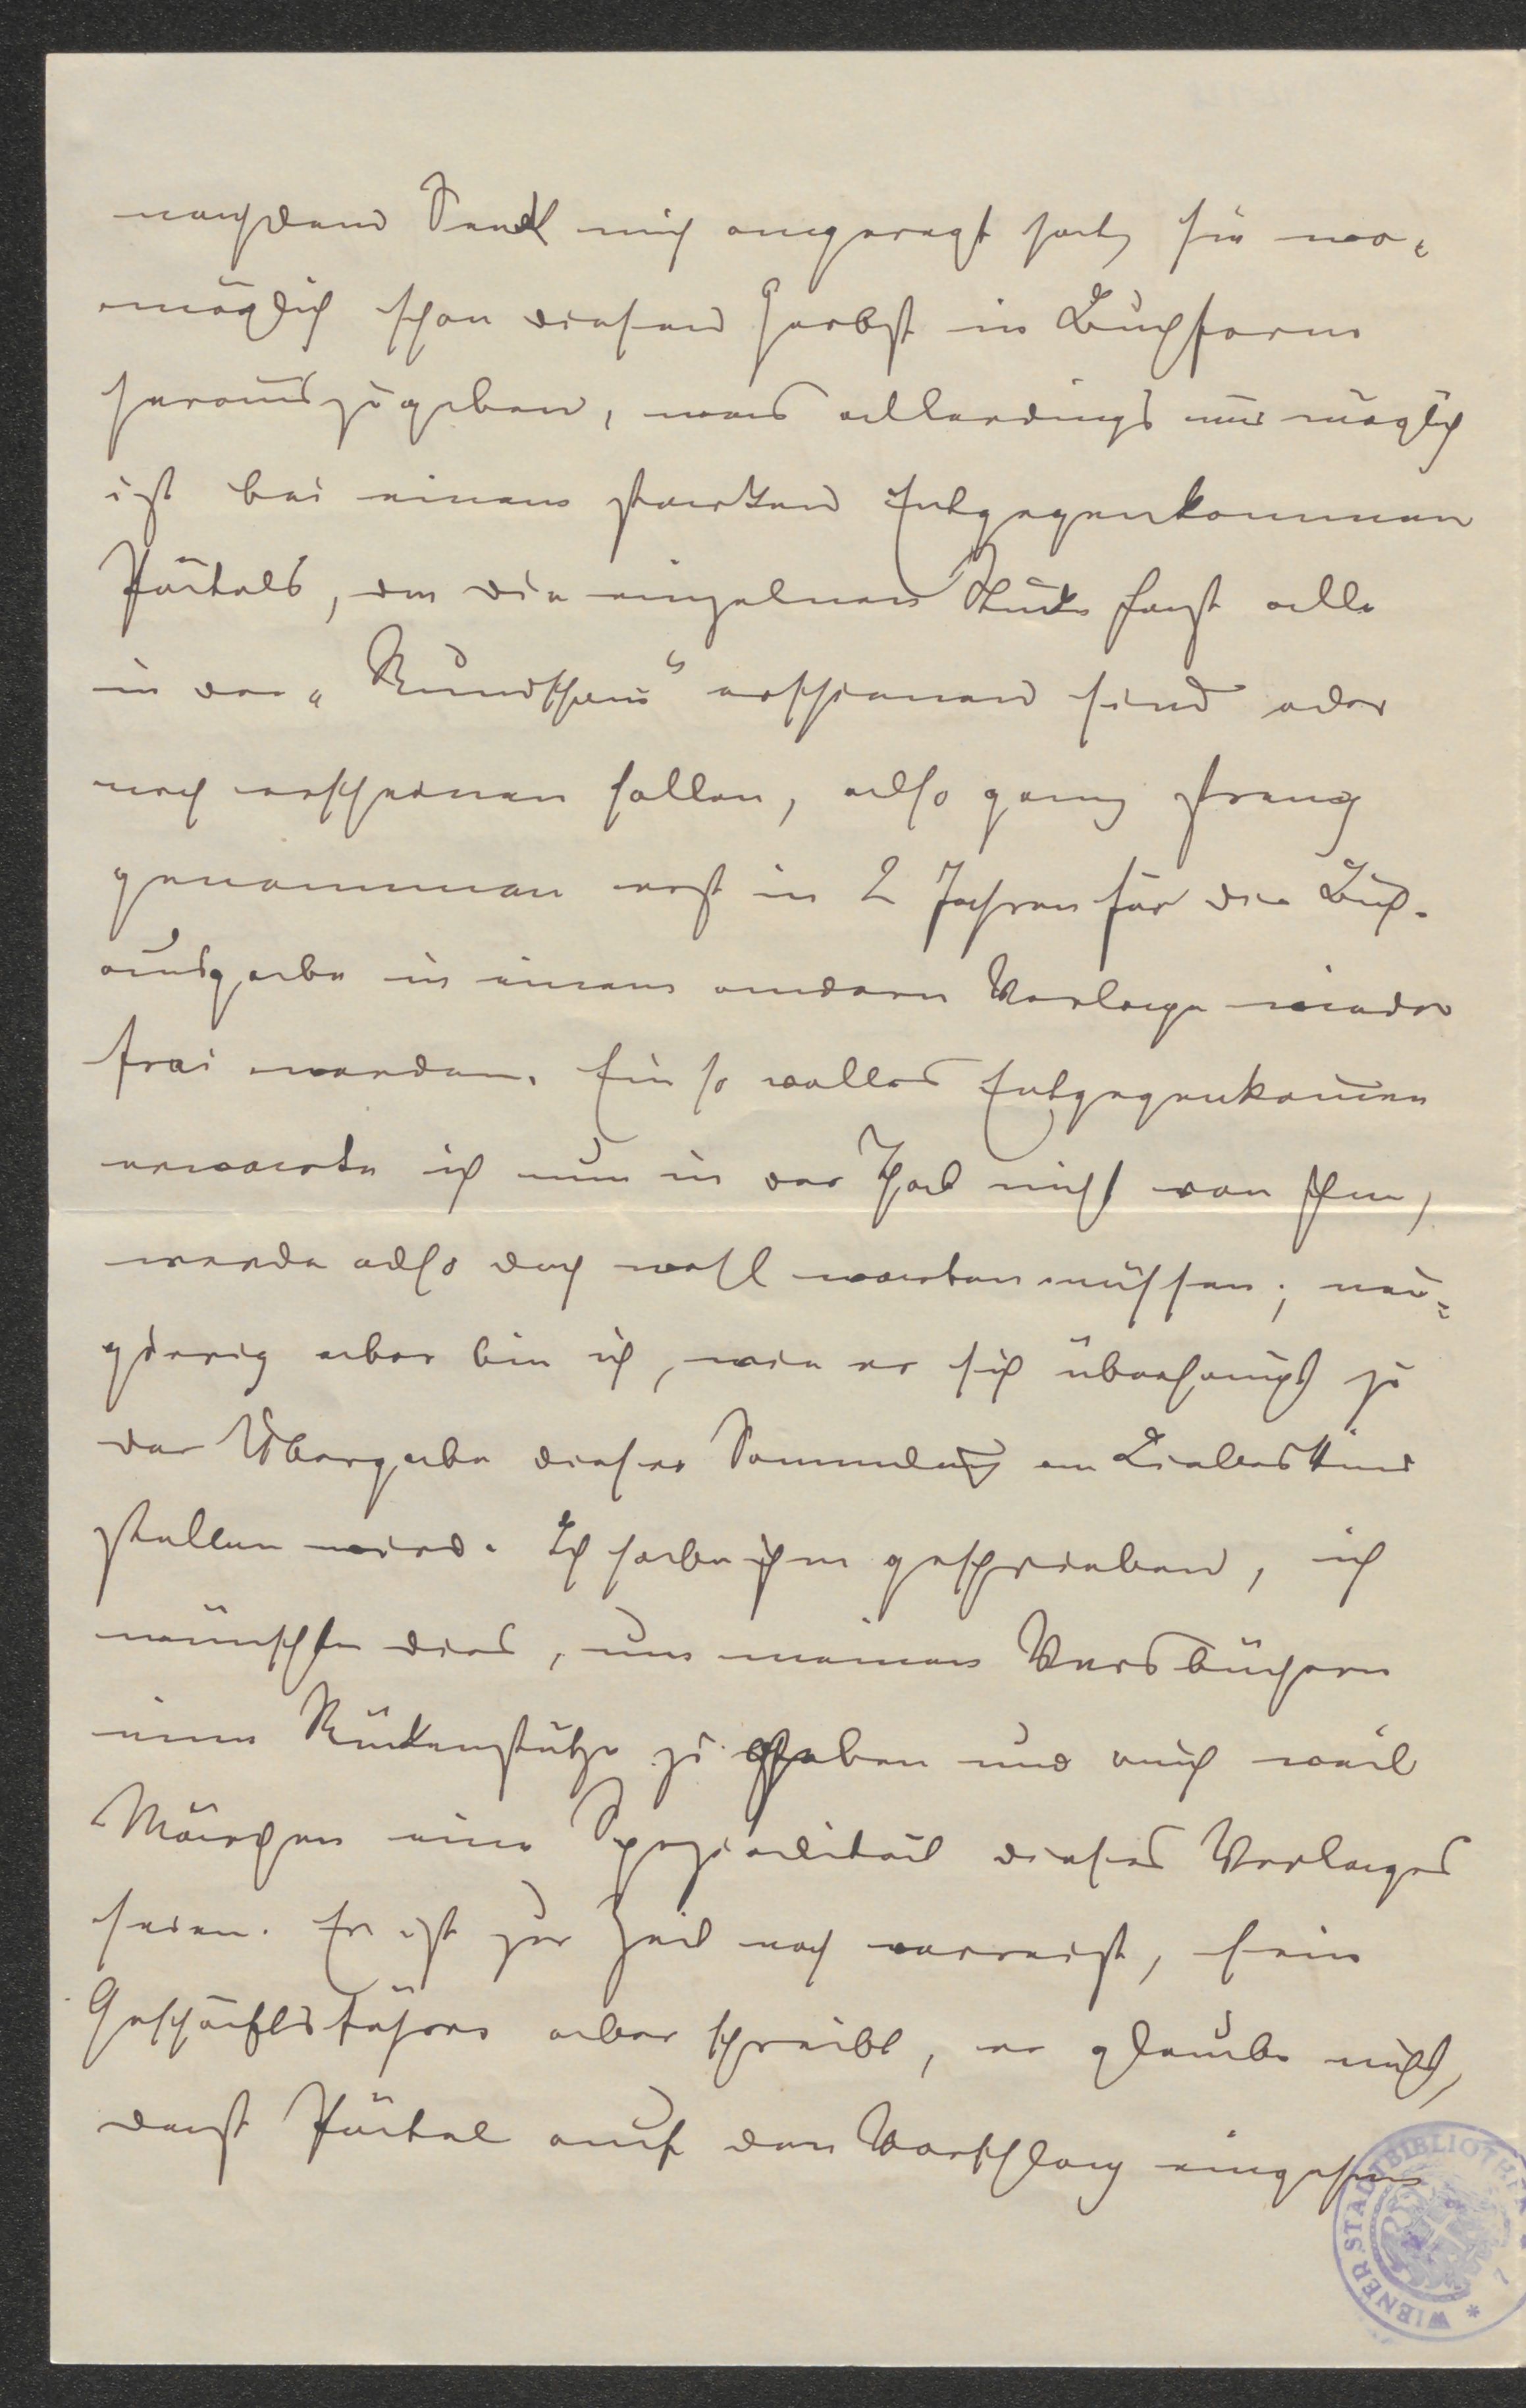 nachdem Sandl mich angeregt hat, sie wo-
möglich schon diesen Herbst in Buchform
herauszugeben, was allerdings nur möglich
ist bei einem starken Entgegenkommen
Pätels, da die einzelnen Stücke fast alle
in der „Rundschau“ erschienen sind oder
noch erscheinen sollen, also ganz streng
genommen erst in 2 Jahren für die Buch-
ausgabe in einem andern Verlage wieder
frei werden. Ein so volles Entgegenkommen
erwarte ich nun in der That nicht von ihm,
werde also doch wohl warten müssen; neu-
gierig aber bin ich, wie er sich überhaupt zu
der Übergabe dieser Sammlung an Liebeskind
stellen wird. Ich habe ihm geschrieben, ich
wünschte dies, um meinen Versbüchern
eine Rückenstütze zu geben und auch weil
Märchen eine Spezialität dieses Verlages
seien. Er ist zur Zeit noch verreist, sein
Geschäftsführer aber schreibt, er glaube nicht,
dass Pätel auf den Vorschlag eingehen
WIENER STADTBIBLIOTHEK